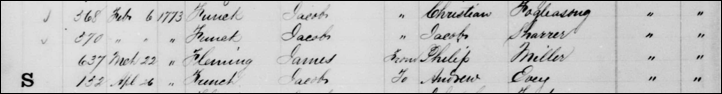 368 Feb 6 1773 Funck Jacob " Christian Fogleasong " "
370 " " " Funck Jacob " Jacob Sharrer " "
637 Mch 22 " Fleming James From Philip Miller " "
S 132 Apl 26 " Funck Jacob To Andrew " "